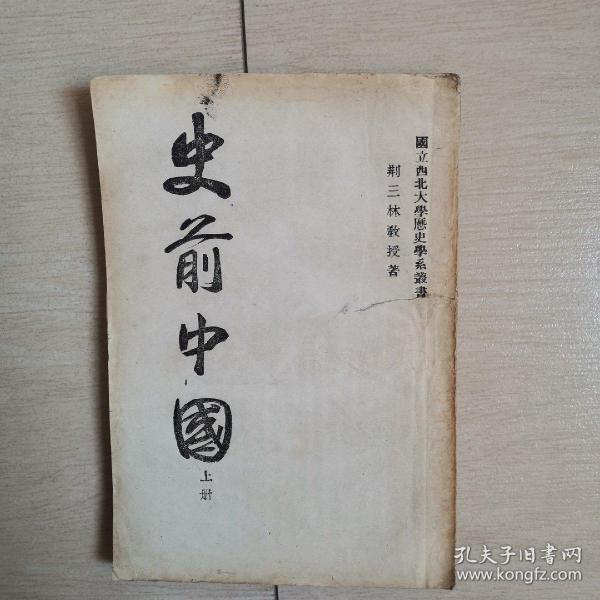 國立西北大學歷史學系叢書
荆三林教授著
史前中國
上册
孔夫子旧书网
www.kongfz.com